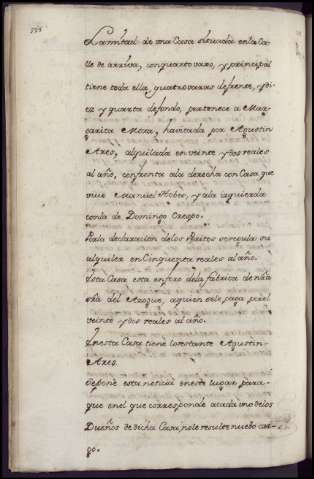 La mitad de una Casa situada en la Ca-
lle de arriva, con quarto vajo, y principal
tiene toda ella, quatro varas de frente, y di-
ez y quarta de fondo, pertenece a Mar-
garita Mora, havitada por Agustin
Ares, alquilada en veinte y dos reales
al año, confronta ala derecha con Casa que
vive Manuel Nobès, y ala izquierda
con la de Domingo Crespo.
Por la declaracion delos Peritos se regula su
alquiler en Cinquenta reales al año.
Esta Casa esta en foro dela fabrica de nra
Sra del Azogue, a quien se le paga por el
veinte y dos reales al año.
En esta Casa tiene lo restante Agustin
Ares.
Se pone esta noticia en este lugar, para
que en el que corresponde a cada uno delos
Dueños de dicha Casa, no le resulte nuebo car-
go.